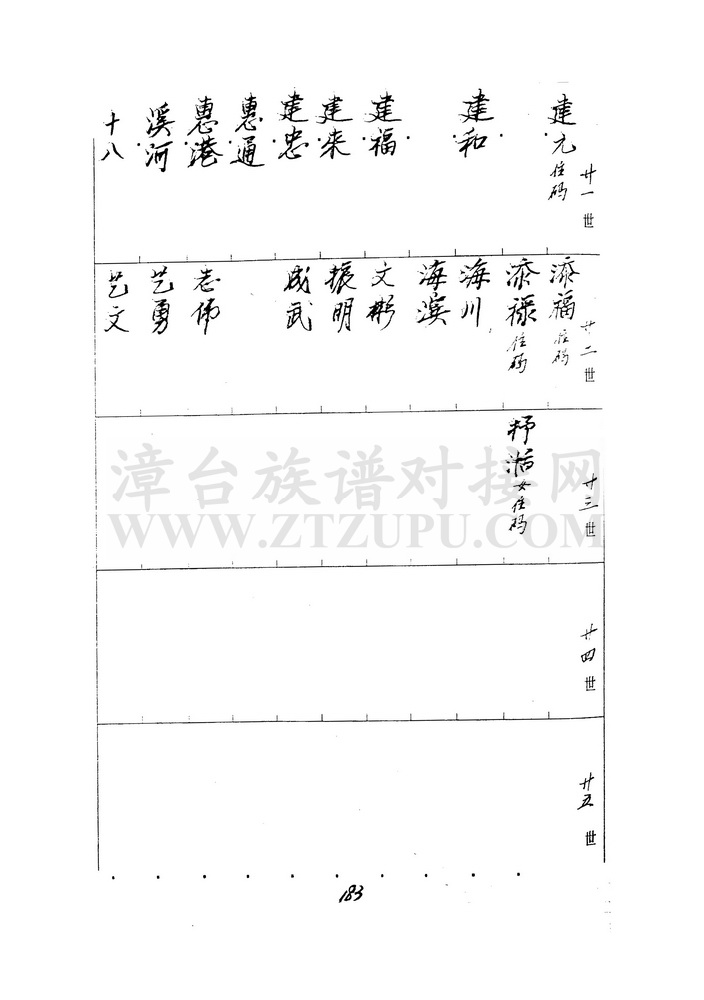 廿一世
建元 住码
建和
建福
建来
建忠
惠通
惠港
溪河
十八
廿二世
添福 住码
添禄 住码
海川
海滨
文彬
振明
成武
志伟
艺勇
艺文
廿三世
女住码
廿四世
廿五世
183
漳台族谱对接网
WWW.ZTZUPU.COM